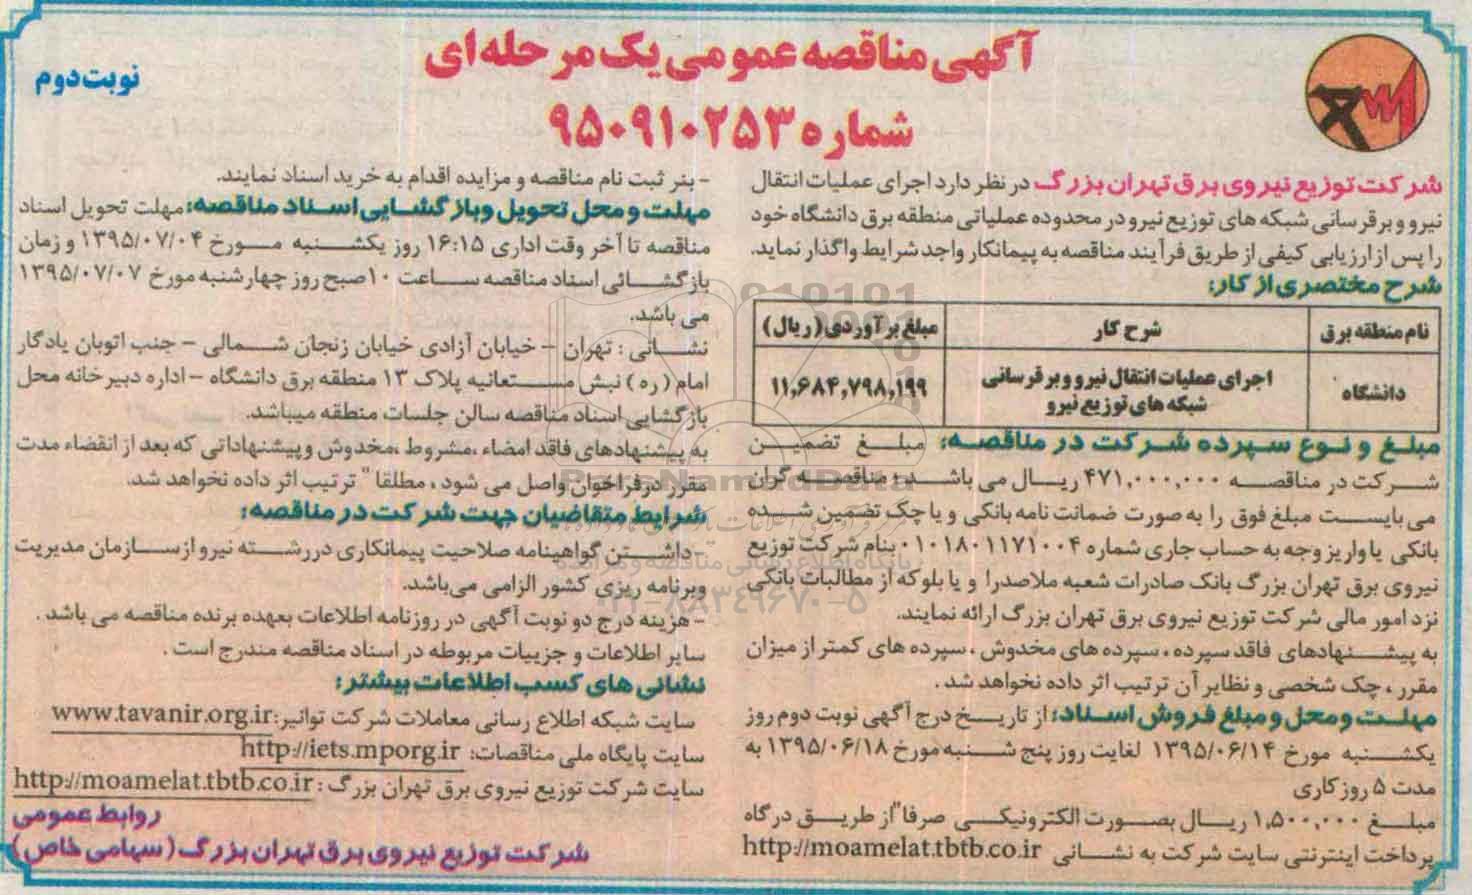 آگهی مناقصه عمومی یک مرحله‌ای
شماره ۹۵۰۹۱۰۲۵۳
نوبت دوم
شرکت توزیع نیروی برق تهران بزرگ در نظر دارد اجرای عملیات انتقال
نیرو و برقرسانی شبکه های توزیع نیرو در محدوده عملیاتی منطقه برق دانشگاه خود
را پس از ارزیابی کیفی از طریق فرآیند مناقصه به پیمانکار واجد شرایط واگذار نماید.
شرح مختصری از کار:
نام منطقه برق شرح کار مبلغ برآوردی (ریال)
دانشگاه اجرای عملیات انتقال نیرو و برقرسانی ۱۱,۶۸۴,۷۹۸,۱۹۹
شبکه های توزیع نیرو
مبلغ و نوع سپرده شرکت در مناقصه: مبلغ تضمین
شرکت در مناقصه ۴۷۱,۰۰۰,۰۰۰ ریال می باشد، مناقصه گران
می بایست مبلغ فوق را به صورت ضمانت نامه بانکی و یا چک تضمین شده
بانکی یا واریز وجه به حساب جاری شماره ۰۱۰۱۸۰۱۱۷۱۰۰۴ بنام شرکت توزیع
نیروی برق تهران بزرگ بانک صادرات شعبه ملاصدرا و یا بلوکه از مطالبات بانکی
نزد امور مالی شرکت توزیع نیروی برق تهران بزرگ ارائه نمایند.
به پیشنهادهای فاقد سپرده، سپرده های مخدوش، سپرده های کمتر از میزان
مقرر، چک شخصی و نظایر آن ترتیب اثر داده نخواهد شد.
مهلت و محل و مبلغ فروش اسناد: از تاریخ درج آگهی نوبت دوم روز
یکشنبه مورخ ۱۳۹۵/۰۶/۱۴ لغایت روز پنج شنبه مورخ ۱۳۹۵/۰۶/۱۸ به
مدت ۵ روز کاری
مبلغ ۱,۵۰۰,۰۰۰ ریال بصورت الکترونیکی صرفا" از طریق درگاه
پرداخت اینترنتی سایت شرکت به نشانی http://moamelat.tbtb.co.ir
- بنر ثبت نام مناقصه و مزایده اقدام به خرید اسناد نمایند.
مهلت و محل تحویل و بازگشایی اسناد مناقصه: مهلت تحویل اسناد
مناقصه تا آخر وقت اداری ۱۶:۱۵ روز یکشنبه مورخ ۱۳۹۵/۰۷/۰۴ و زمان
بازگشائی اسناد مناقصه ساعت ۱۰ صبح روز چهارشنبه مورخ ۱۳۹۵/۰۷/۰۷
می باشد.
نشانی: تهران - خیابان آزادی خیابان زنجان شمالی - جنب اتوبان یادگار
امام (ره) نبش مستعانیه پلاک ۱۳ منطقه برق دانشگاه - اداره دبیرخانه محل
بازگشایی اسناد مناقصه سالن جلسات منطقه میباشد.
به پیشنهادهای فاقد امضاء، مشروط، مخدوش و پیشنهاداتی که بعد از انقضاء مدت
مقرر در فراخوان واصل می شود، مطلقا" ترتیب اثر داده نخواهد شد.
شرایط متقاضیان جهت شرکت در مناقصه:
- داشتن گواهینامه صلاحیت پیمانکاری در رشته نیرو از سازمان مدیریت
و برنامه ریزی کشور الزامی می‌باشد.
- هزینه درج دو نوبت آگهی در روزنامه اطلاعات بعهده برنده مناقصه می باشد.
سایر اطلاعات و جزییات مربوطه در اسناد مناقصه مندرج است.
نشانی های کسب اطلاعات بیشتر:
سایت شبکه اطلاع رسانی معاملات شرکت توانیر: www.tavanir.org.ir
سایت پایگاه ملی مناقصات: http://iets.mporg.ir
سایت شرکت توزیع نیروی برق تهران بزرگ: http://moamelat.tbtb.co.ir
روابط عمومی
شرکت توزیع نیروی برق تهران بزرگ (سهامی خاص)
ParsNamadData
پایگاه اطلاع رسانی مناقصه و مزایده
۰۲۱-۸۸۳۴۹۶۷۰-۵